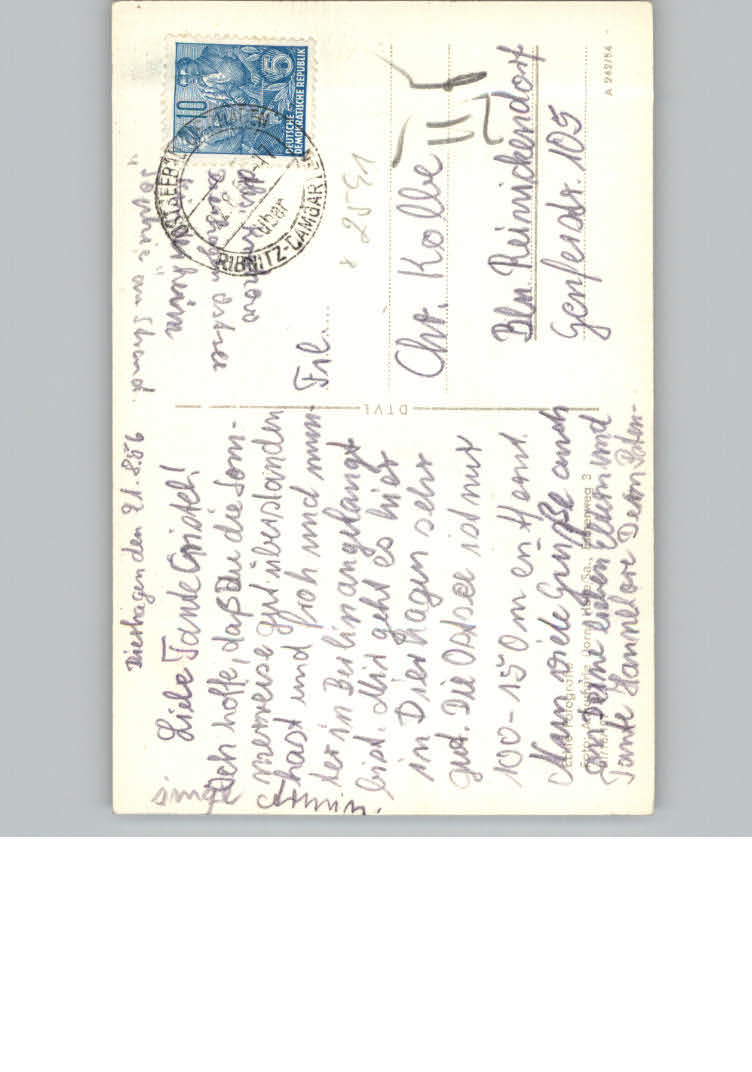 Dierhagen den 21.8.56
Liebe Tante Christel!
Ich hoffe, daß Du die Som-
merreise gut überstanden
hast und froh und mun-
ter in Berlin angelangt
bist. Mir geht es hier
in Dierhagen sehr
gut. Die Ostsee ist nur
100-150 m entfernt.
Nun viele Grüße auch
an Deine lieben Eltern und
Tante Hannelore Dein Paten-
Armin.
DTVL
Echte Fotografie
3
10
5
DEUTSCHE
DEMOKRATISCHE REPUBLIK
OSTSEEBAD
über
RIBNITZ-DAMGARTEN
am Strand.
x 2591
Frl.
Chr. Kolbe
Bln. Reinickendorf
Genferstr. 105
A 262/54